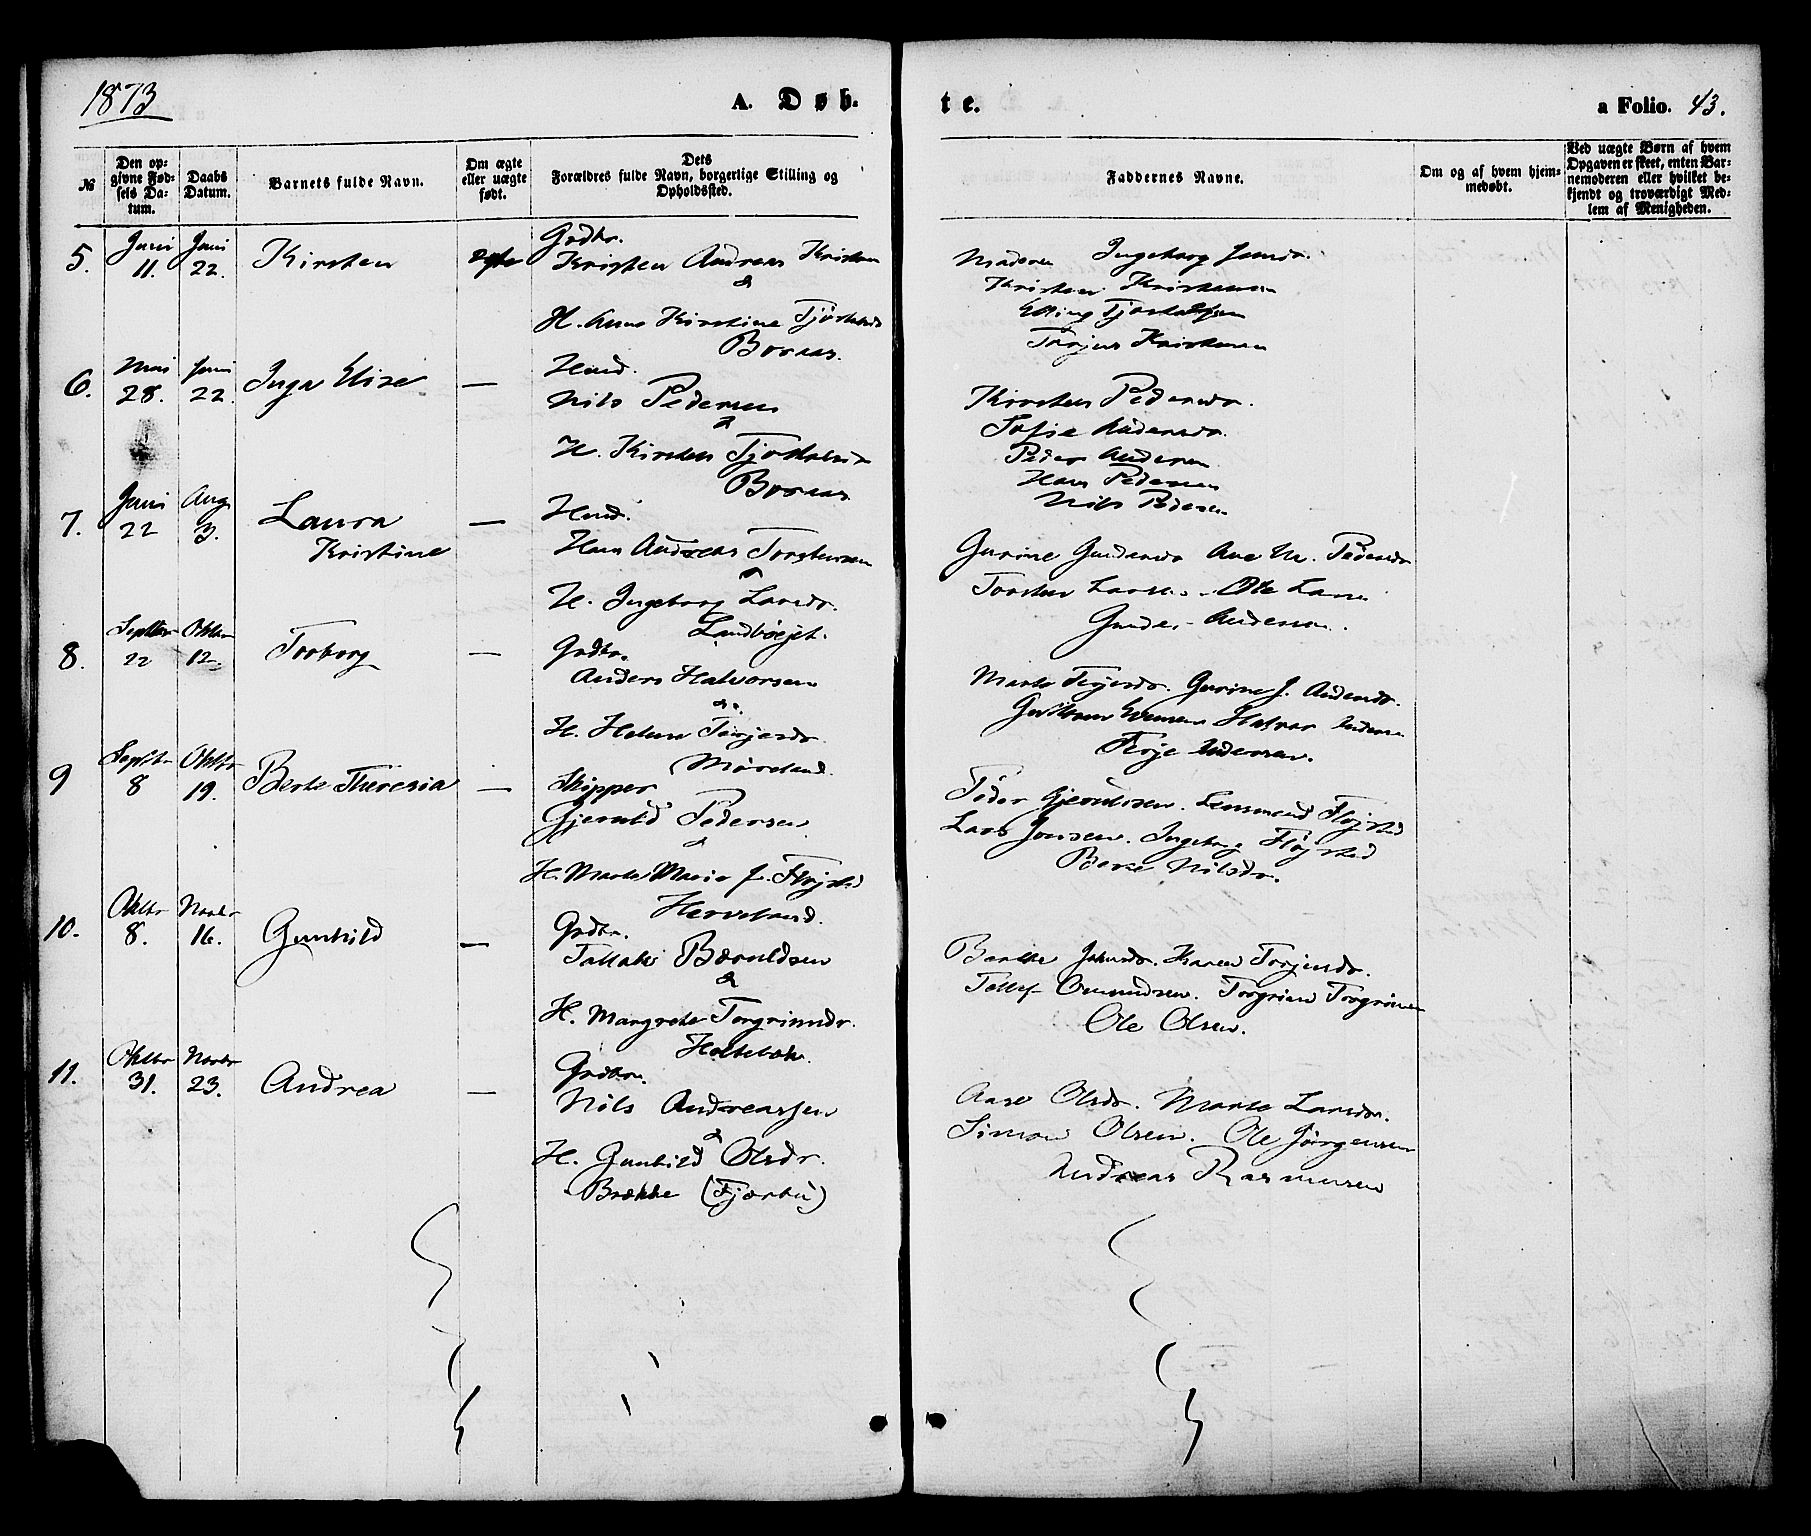 1873
A. Døb-
te.
a Folio. 43.
№
Den opgivne Fødsels Datum.
Daabs Datum.
Barnets fulde Navn.
Om ægte eller uægte født.
Dets Forældres fulde Navn, borgerlige Stilling og Opholdssted.
Faddernes Navne.
Om og af hvem hjemmedøbt.
Ved uægte Børn af hvem Opgaven er skeet, enten Barnemoderen eller hvilket bekjendt og troværdigt Medlem af Menigheden.
5. Juni 11. Juni 22. Kirsten ægte
Grdbr.
Kristen Andreas Kristen
&
H. Anne Kirstine Tjøstelsd
Boraas.
Moderen Ingeborg Jensdr.
Kristen Kristensen
Elling Tjøstelsen
Torjus Kristensen
6. Mai 28. Juni 22. Inga Elise —
Husmd.
Nils Pedersen
&
H. Kirsten Tjøstelsdr
Boraas
Kirsten Pedersdr.
Sofie Andersdr.
Peder Andersen
Hans Pedersen
Nils Pedersen
7. Juni 22 Aug. 3. Laura
Kristine —
Husmd.
Hans Andreas Torstensen
&
H. Ingeborg Larsdr.
Gurine Gundersdr Ane M. Pedersdr
Torsten Larsen. Ole Larsen
Gunder Andersen.
8. Septbr 22 Oktbr 12. Torborg —
Grdbr.
Anders Halvorsen
&.
H. Helene Terjesdr.
Moreland.
Marte Terjesdr. Gurine J. Andersdr.
Halvor Anderse
Terje Andersen.
9 Septbr 8 Oktbr 19. Berte Theresia —
Skipper
Gjeruld Pedersen
&
H. Marte Marie f. Fløjstad
Herveland.
Peder Gjeruldsen. Lensmand Fløjstad
Lars Jonsen. Ingeborg Fløjstad
Berte Nilsdr.
10. Oktbr 8. Novbr 16. Gunhild —
Grdbr.
Tallak Bæruldsen
&
H. Margrete Torgrimsdr.
Holtebæk.
Karen Torjusdr.
Tellef Omundsen. Torgrim Torgrimse
Ole Olsen.
11. Oktbr 31. Novbr 23. Andrea —
Grdbr.
Nils Andreassen
&
H. Gunhild Olsdr.
Brække (Fjærbu)
Aase Olsdr. Marte Larsdr.
Simon Olsen. Ole Jørgensen
Andreas Rasmusen